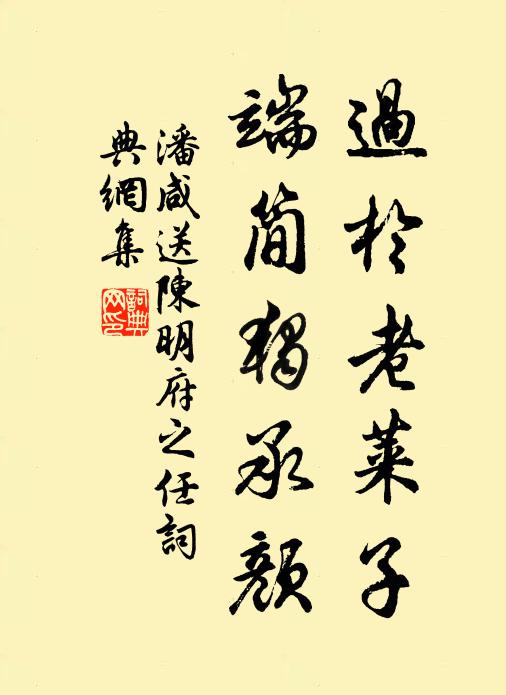 過於老萊子
端簡獨承顏
潘咸送陳明府之任詞
典網集
詞典
网印